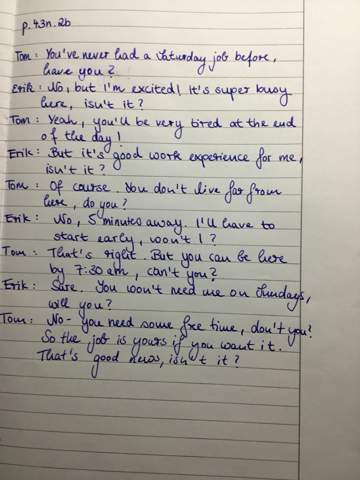 p.43n.2b
Tom: You've never had a Saturday job before,
have you?
Erik: No, but I'm excited! It's super busy
here, isn't it?
Tom: Yeah, you'll be very tired at the end
of the day!
Erik: But it's good work experience for me,
isn't it?
Tom: Of course. You don't live far from
here, do you?
Erik: No, 5 minutes away. I'll have to
start early, won't I?
Tom: That's right. But you can be here
by 7:30 am, can't you?
Erik: Sure. You won't need me on Sundays,
will you?
Tom: No - you need some free time, don't you?
So the job is yours if you want it.
That's good news, isn't it?